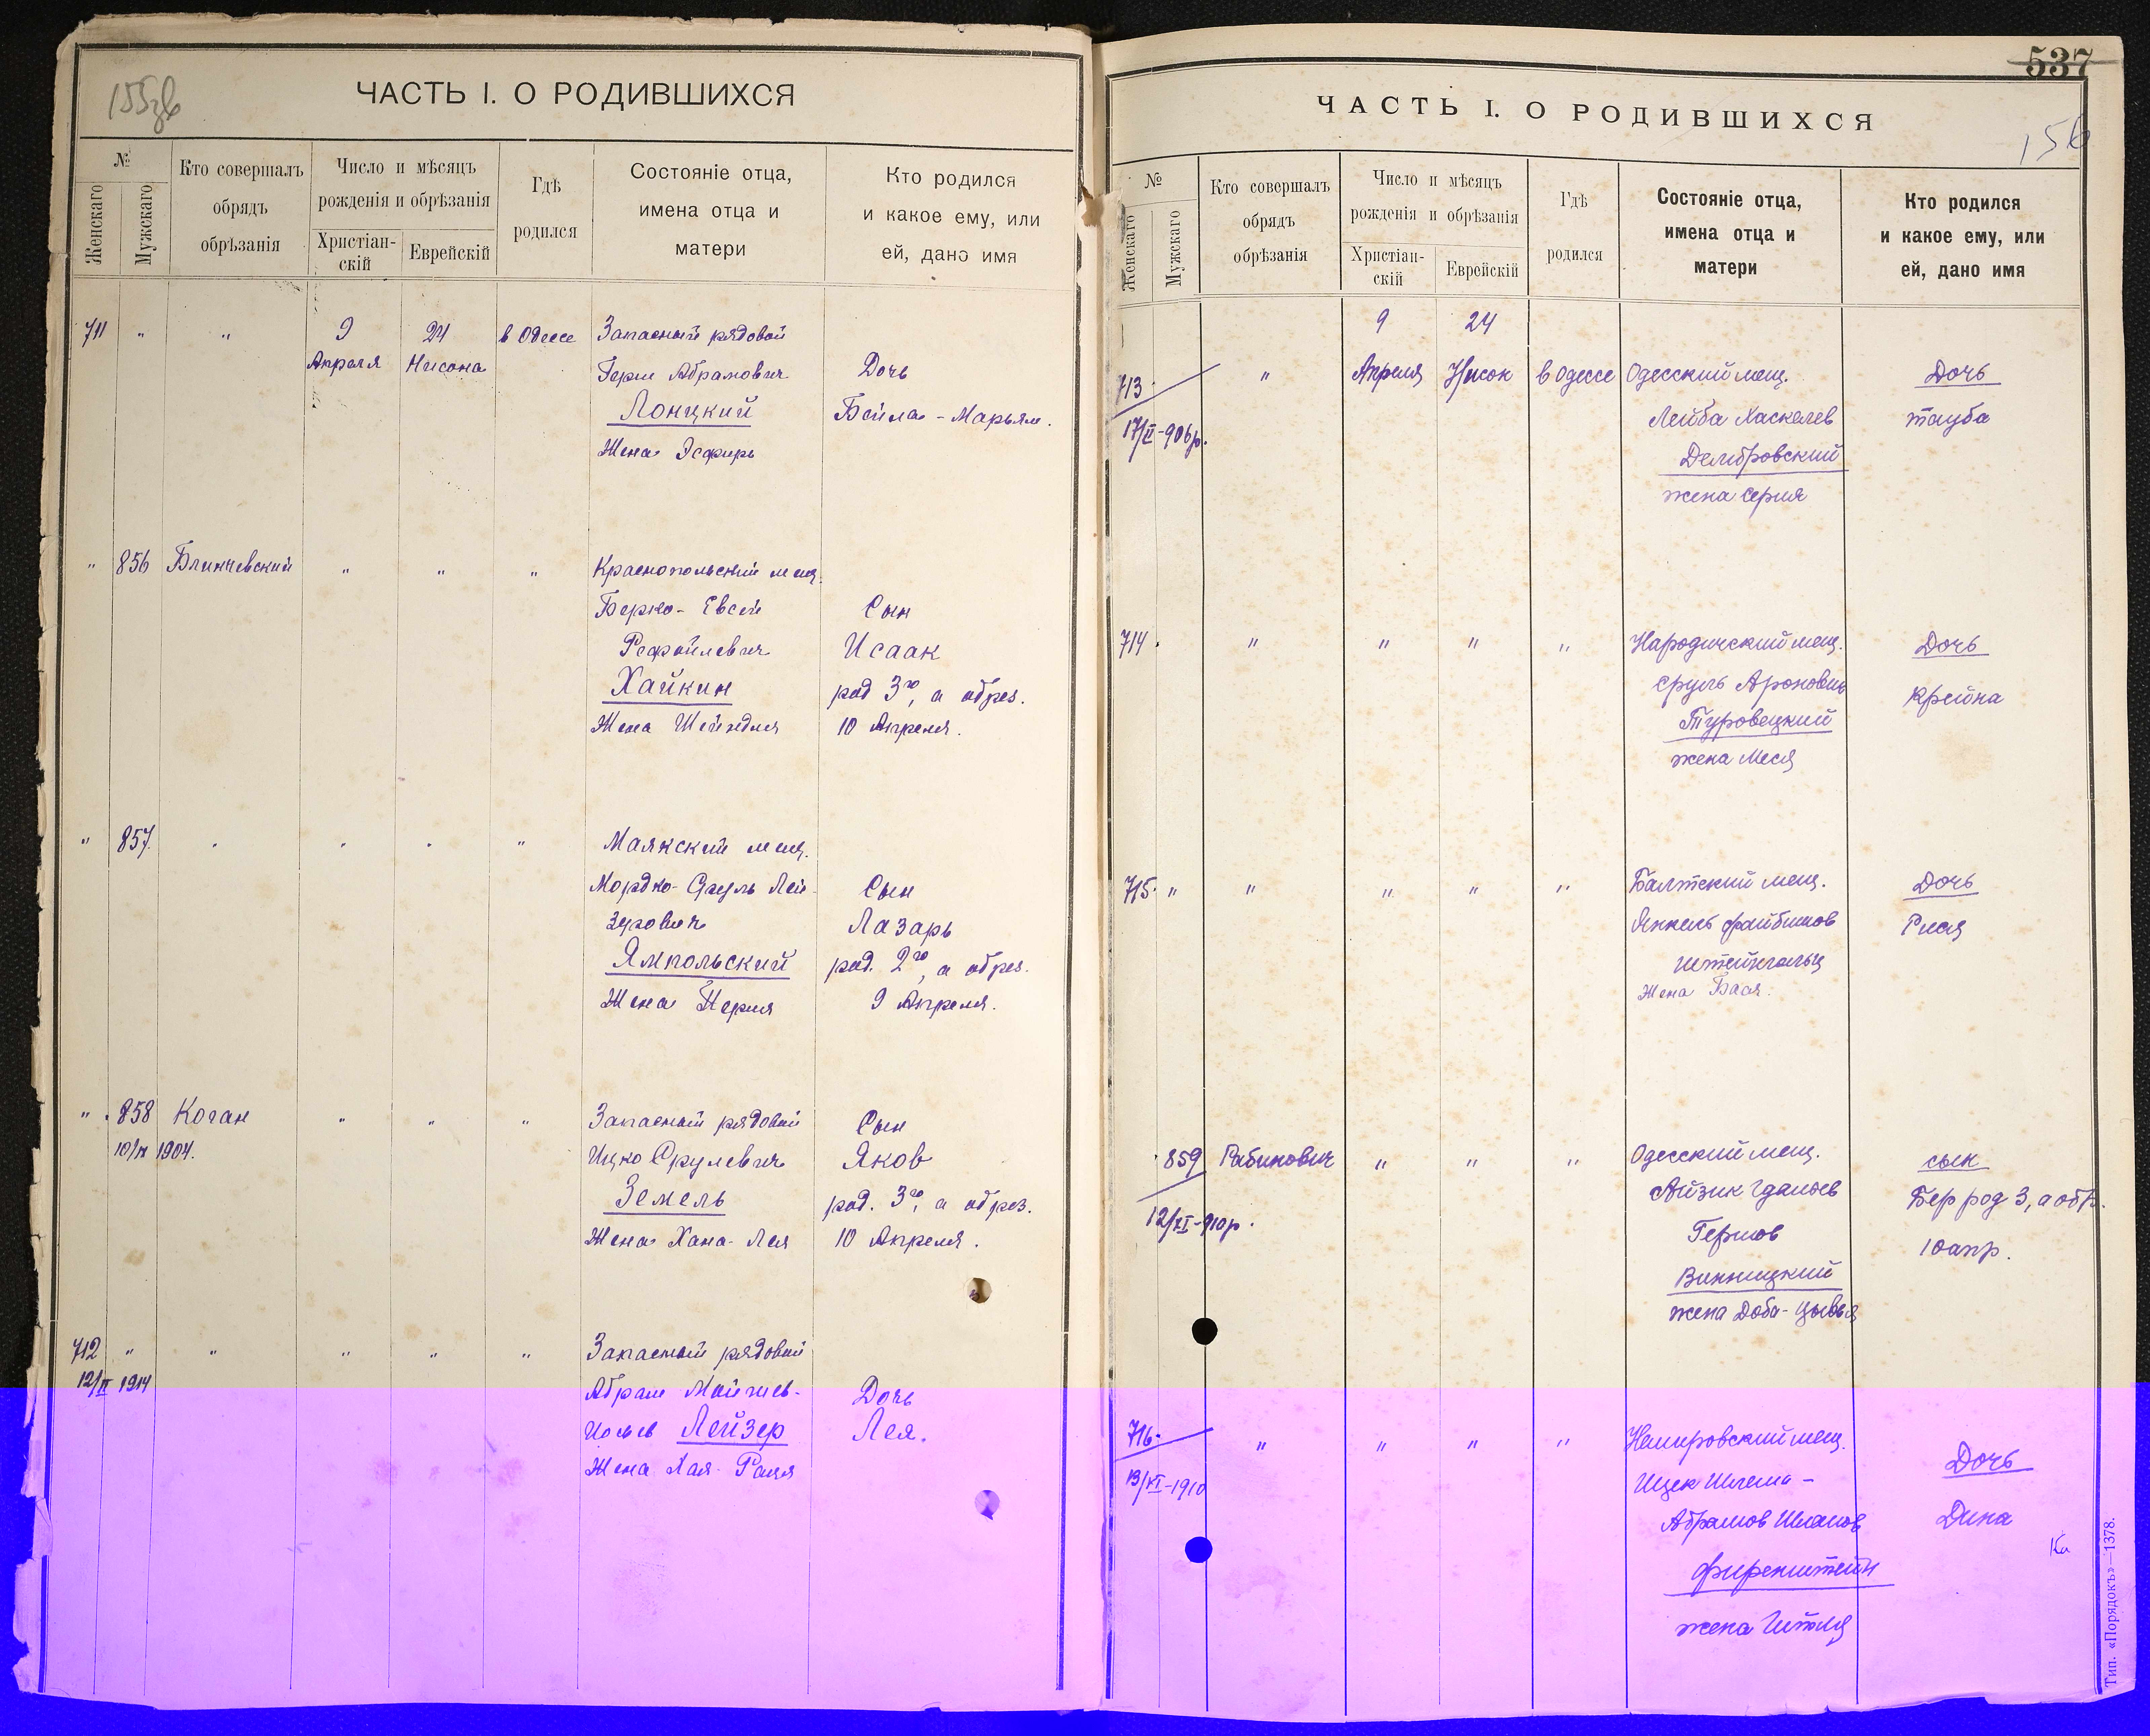 155об
ЧАСТЬ I. О РОДИВШИХСЯ
№
Женскаго
Мужскаго
Кто совершалъ
обрядъ
обрѣзанія
Число и мѣсяцъ
рожденія и обрѣзанія
Христіан-
скій
Еврейскій
Гдѣ
родился
Состояніе отца,
имена отца и
матери
Кто родился
и какое ему, или
ей, дано имя
711 " " 9 24 в Одессе Запасный рядовой
Апреля Нисона Герш Абрамович Дочь
Лонцкий Бейла - Марьям.
Жена Эсфирь
" 856 Блинчевский " " " Краснопольский мещ.
Берко- Евсей Сын
Рафайлевич Исаак
Хайкин род 3го, а обрез.
Жена Шейндля 10 Апреля.
" 857. " " " " Маякский мещ.
Мордко- Сруль Лей- Сын
зерович Лазарь
Ямпольский род. 2го, а обрез.
Жена Перля 9 Апреля.
" 858 Коган " " " Запасный рядовой Сын
10/IV 1904. Ицко Срулевич Яков
Земель род. 3го, а обрез.
Жена Хана- Лея 10 Апреля.
712 " " " " " Запасный рядовой
12/II 1914 Абрам Мойшев- Дочь
Иосев Лейзер Лея.
Жена Хая-
537
ЧАСТЬ I. О РОДИВШИХСЯ
156
№
Женскаго
Мужскаго
Кто совершалъ
обрядъ
обрѣзанія
Число и мѣсяцъ
рожденія и обрѣзанія
Христіан-
скій
Еврейскій
Гдѣ
родился
Состояніе отца,
имена отца и
матери
Кто родился
и какое ему, или
ей, дано имя
9 24
713 " Апреля Нисон в Одессе Одесский мещ. Дочь
17/II-906р. Лейба Хаскелев Тауба
Дембровский
жена Серля
714. " " " " Народичский мещ. Дочь
Сруль Аронович Крейна
Туровецкий
жена Меся
715. " " " " " Балтский мещ. Дочь
Янкель Файбишов
Штейнгольц
Жена Бася.
859 Рабинович " " " Одесский мещ. сын
12/XI-910р. Айзик Гдалиев Бер род 3, а обр.
Гершов 10 апр.
Винницкий
жена Доба-Цывья
716. " " " " Немировский мещ. Дочь
13/XI-1910 Ицек Шлема - Дина
Абрамов
Фиренштейн
жена Гитля
Тип. «Порядокъ»—1378.